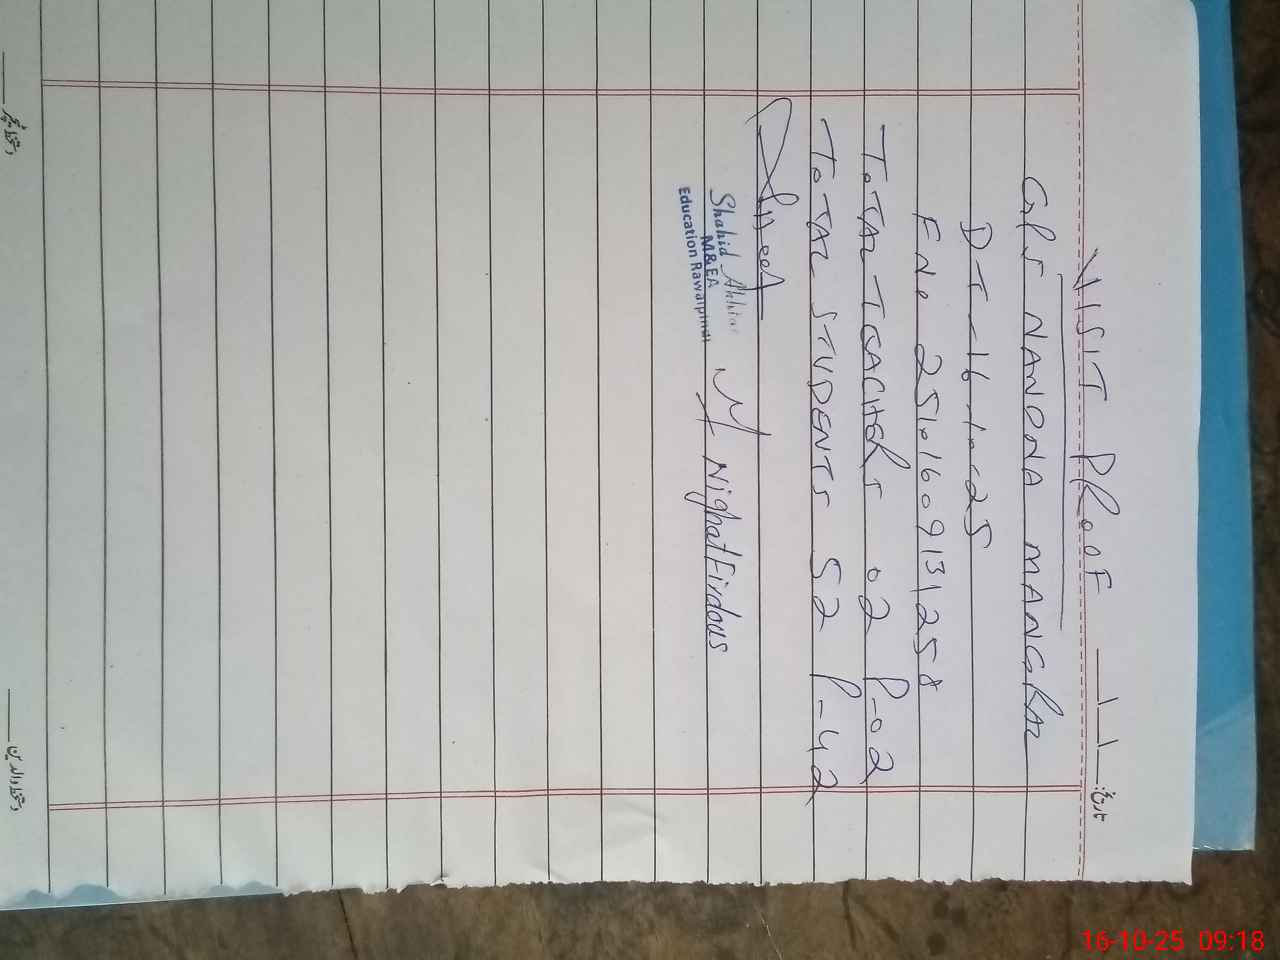 VISIT PROOF
تاریخ:
GPS NANDNA MANGRAL
DT-16-10-25
F No 25101609131258
TOTAL TEACHERS 02 P-02
TOTAL STUDENTS 52 P-42
Shahid Akhtar
M&EA
Education Rawalpindi
Nighat Firdous
دستخط ٹیچر
دستخط والدین
16-10-25 09:18